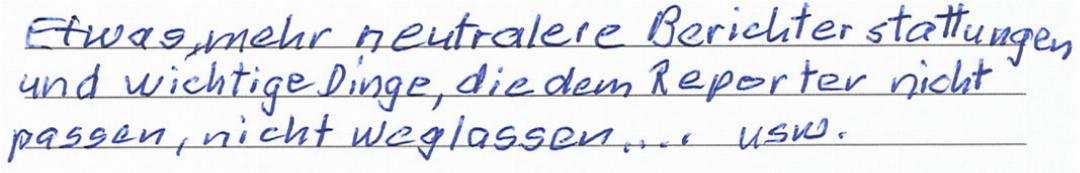 Etwas, mehr neutralere Berichterstattungen
und wichtige Dinge, die dem Reporter nicht
passen, nicht weglassen.... usw.